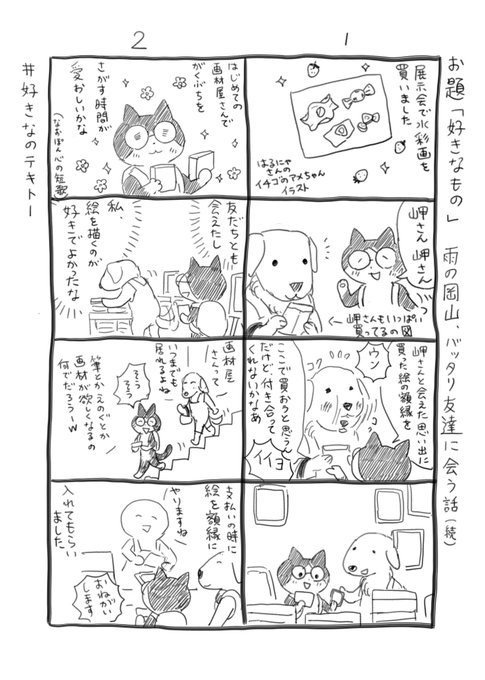 お題「好きなもの」 雨の岡山、バッタリ友達に会う話(続)
1
展示会で水彩画を
買いました
はるにゃ
さんの
イチゴのアメちゃん
イラスト
岬さん 岬さん
←岬さんもいっぱい
買ってるの図
岬さんと会えた思い出に
買った絵の額縁を
ウン
ここで買おうと思うん
だけど、付き合って
くれないかなあ
コク
イイヨ
2
はじめての
画材屋さんで
がくぶちを
さがす時間が
愛おしいかな
(なおぽん心の短歌)
友だちとも
会えたし
私、
絵を描くのが
好きでよかったな
画材屋
さんって
いつまでも
居れるよね
そう
そう
筆とかえのぐとか
画材が欲しくなるの
何でだろうーw
支払いの時に
絵を額縁に
やりますね
入れてもらい
ました。
おねがい
します
#好きなのテキトー